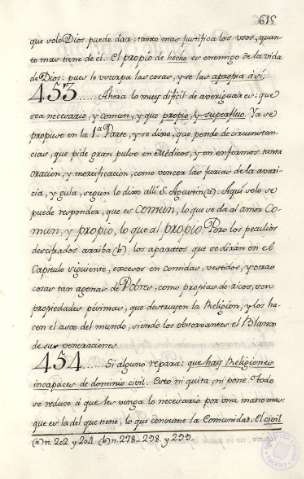 615
que solo Dios puede dar: tanto mas justifica los usos, quan-
to mas tiene de el. El propio de hecho es enemigo de la vida
de Dios: pues le usurpa las cosas, y se las apropria à sí.
453..... Ahora lo muy dificil de averiguar es: que
sea necesario, y comun, y que propio, y superfluo. Ya se
propuso en la 1ª Parte, y se dijo, que pende de circunstan-
cias, que pide gran pulso en Medicos, y en enfermos tanta
oracion, y mortificacion, como vencer las fuerzas de la avari-
cia, y gula, segun lo dixo alli S. Agustin (a). Aqui solo se
puede responder, que es comun, lo que va dà al amor Co-
mun, y propio, lo que al propio. Pero los peculios
descifrados arriba (b), los aparatos que se diran en el
Capitulo siguiente, excesos en comidas, vestidos, y otras
cosas tan agenas de Pobres, como propias de ricos, son
propiedades pesimas, que destruyen la Religion, y los ha-
cen el asco del mundo, siendo los observantes el Blanco
de sus veneraciones.
454.... Si alguno repara: que hay Religiones
incapaces de dominio civil. Esto ni quita, ni pone. Todo
se reduce à que les venga lo necesario por una mano mas:
que es la del que tiene, lo que consume la Comunidad. El civil
(a) n. 202 y 204. (b) n. 278-298 y 299.